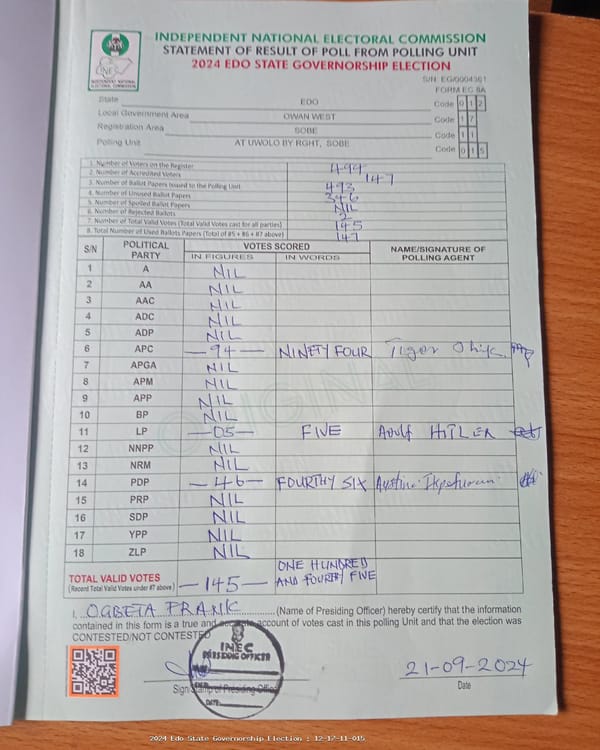 INDEPENDENT NATIONAL ELECTORAL COMMISSION
STATEMENT OF RESULT OF POLL FROM POLLING UNIT
2024 EDO STATE GOVERNORSHIP ELECTION
S/N: EG/0004361
FORM EC 8A
State EDO Code 0 1 2
Local Government Area OWAN WEST Code 1 7
Registration Area SOBE Code 1 1
Polling Unit AT UWOLO BY RGHT, SOBE Code 0 1 5
1. Number of Voters on the Register 494
2. Number of Accredited Voters 147
3. Number of Ballot Papers Issued to the Polling Unit 493
4. Number of Unused Ballot Papers 346
5. Number of Spoiled Ballot Papers NIL
6. Number of Rejected Ballots 2
7. Number of Total Valid Votes (Total Valid Votes cast for all parties) 145
8. Total Number of Used Ballots Papers (Total of #5 + #6 + #7 above) 147
S/N POLITICAL PARTY VOTES SCORED NAME/SIGNATURE OF POLLING AGENT
IN FIGURES IN WORDS
1 A NIL
2 AA NIL
3 AAC NIL
4 ADC NIL
5 ADP NIL
6 APC -94- NINETY FOUR Tiger
7 APGA NIL
8 APM NIL
9 APP NIL
10 BP NIL
11 LP -05- FIVE Adolf HITLER
12 NNPP NIL
13 NRM NIL
14 PDP -46- FOURTHY SIX Austine
15 PRP NIL
16 SDP NIL
17 YPP NIL
18 ZLP NIL
TOTAL VALID VOTES -145- ONE HUNDRED AND FOURTHY FIVE
(Recent Total Valid Votes under #7 above)
I, OGBETA FRANK (Name of Presiding Officer) hereby certify that the information
contained in this form is a true and accurate account of votes cast in this polling Unit and that the election was
CONTESTED/NOT CONTESTED
INEC
PRESIDING OFFICER
DATE:
21-09-2024
Sign/Stamp of Presiding Officer Date
ORIGINAL
2024 Edo State Governorship Election : 12-17-11-015